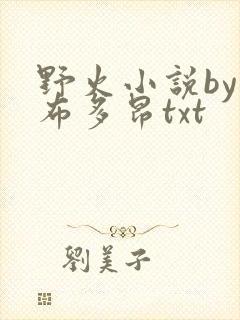 野火小説by
布多昂txt
劉美子